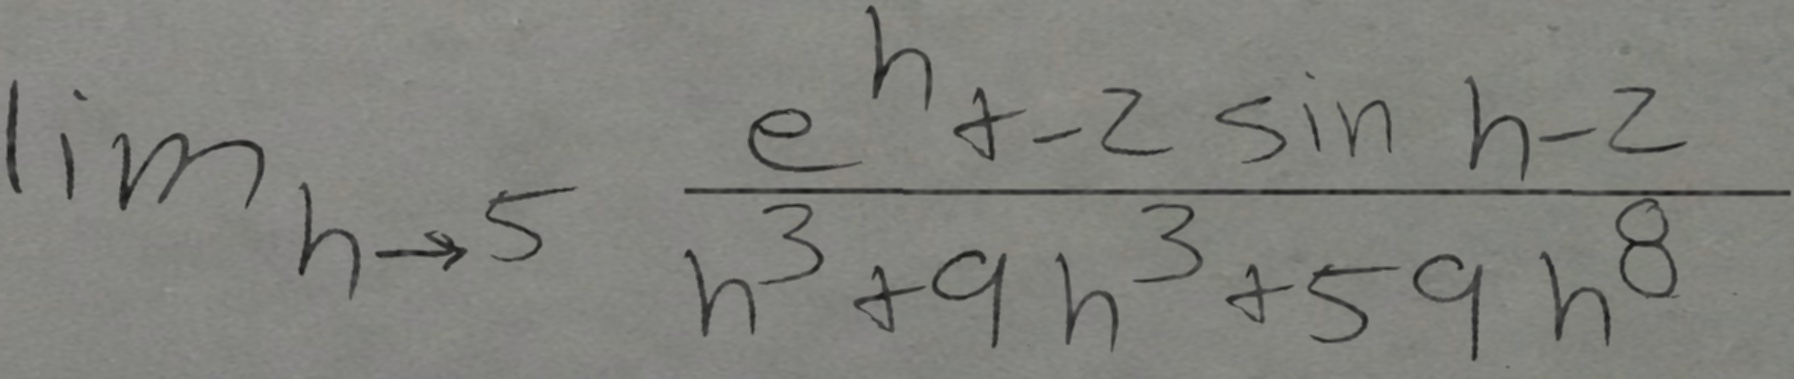 \lim_{h \to 5} \frac{e^h + -2 \sin h - 2}{h^3 + 9h^3 + 59h^8}